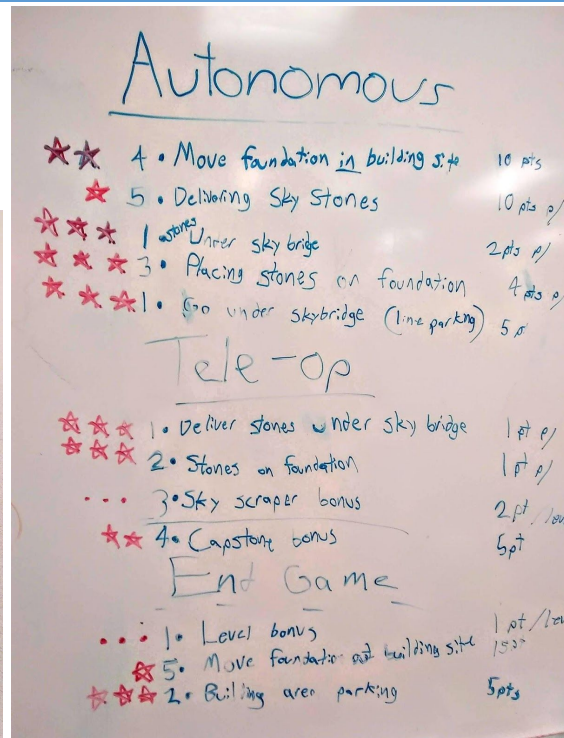 Autonomous
4 • Move foundation in building site 10 pts
5 • Delivering Sky Stones 10 pts p/
1 • stones Under sky brige 2pts p/
3 • Placing stones on foundation 4 pts p/
1 • Go under skybridge (line parking) 5 p
Tele-op
1 • Deliver stones under sky bridge 1 pt p/
2 • Stones on foundation 1 pt p/
3 • Sky scraper bonus 2 pt /lev
4 • Capstone bonus 5pt
End Game
1 • Level bonus 1 pt /lev
5 • Move foundation out building site
2 • Building area parking 5pts